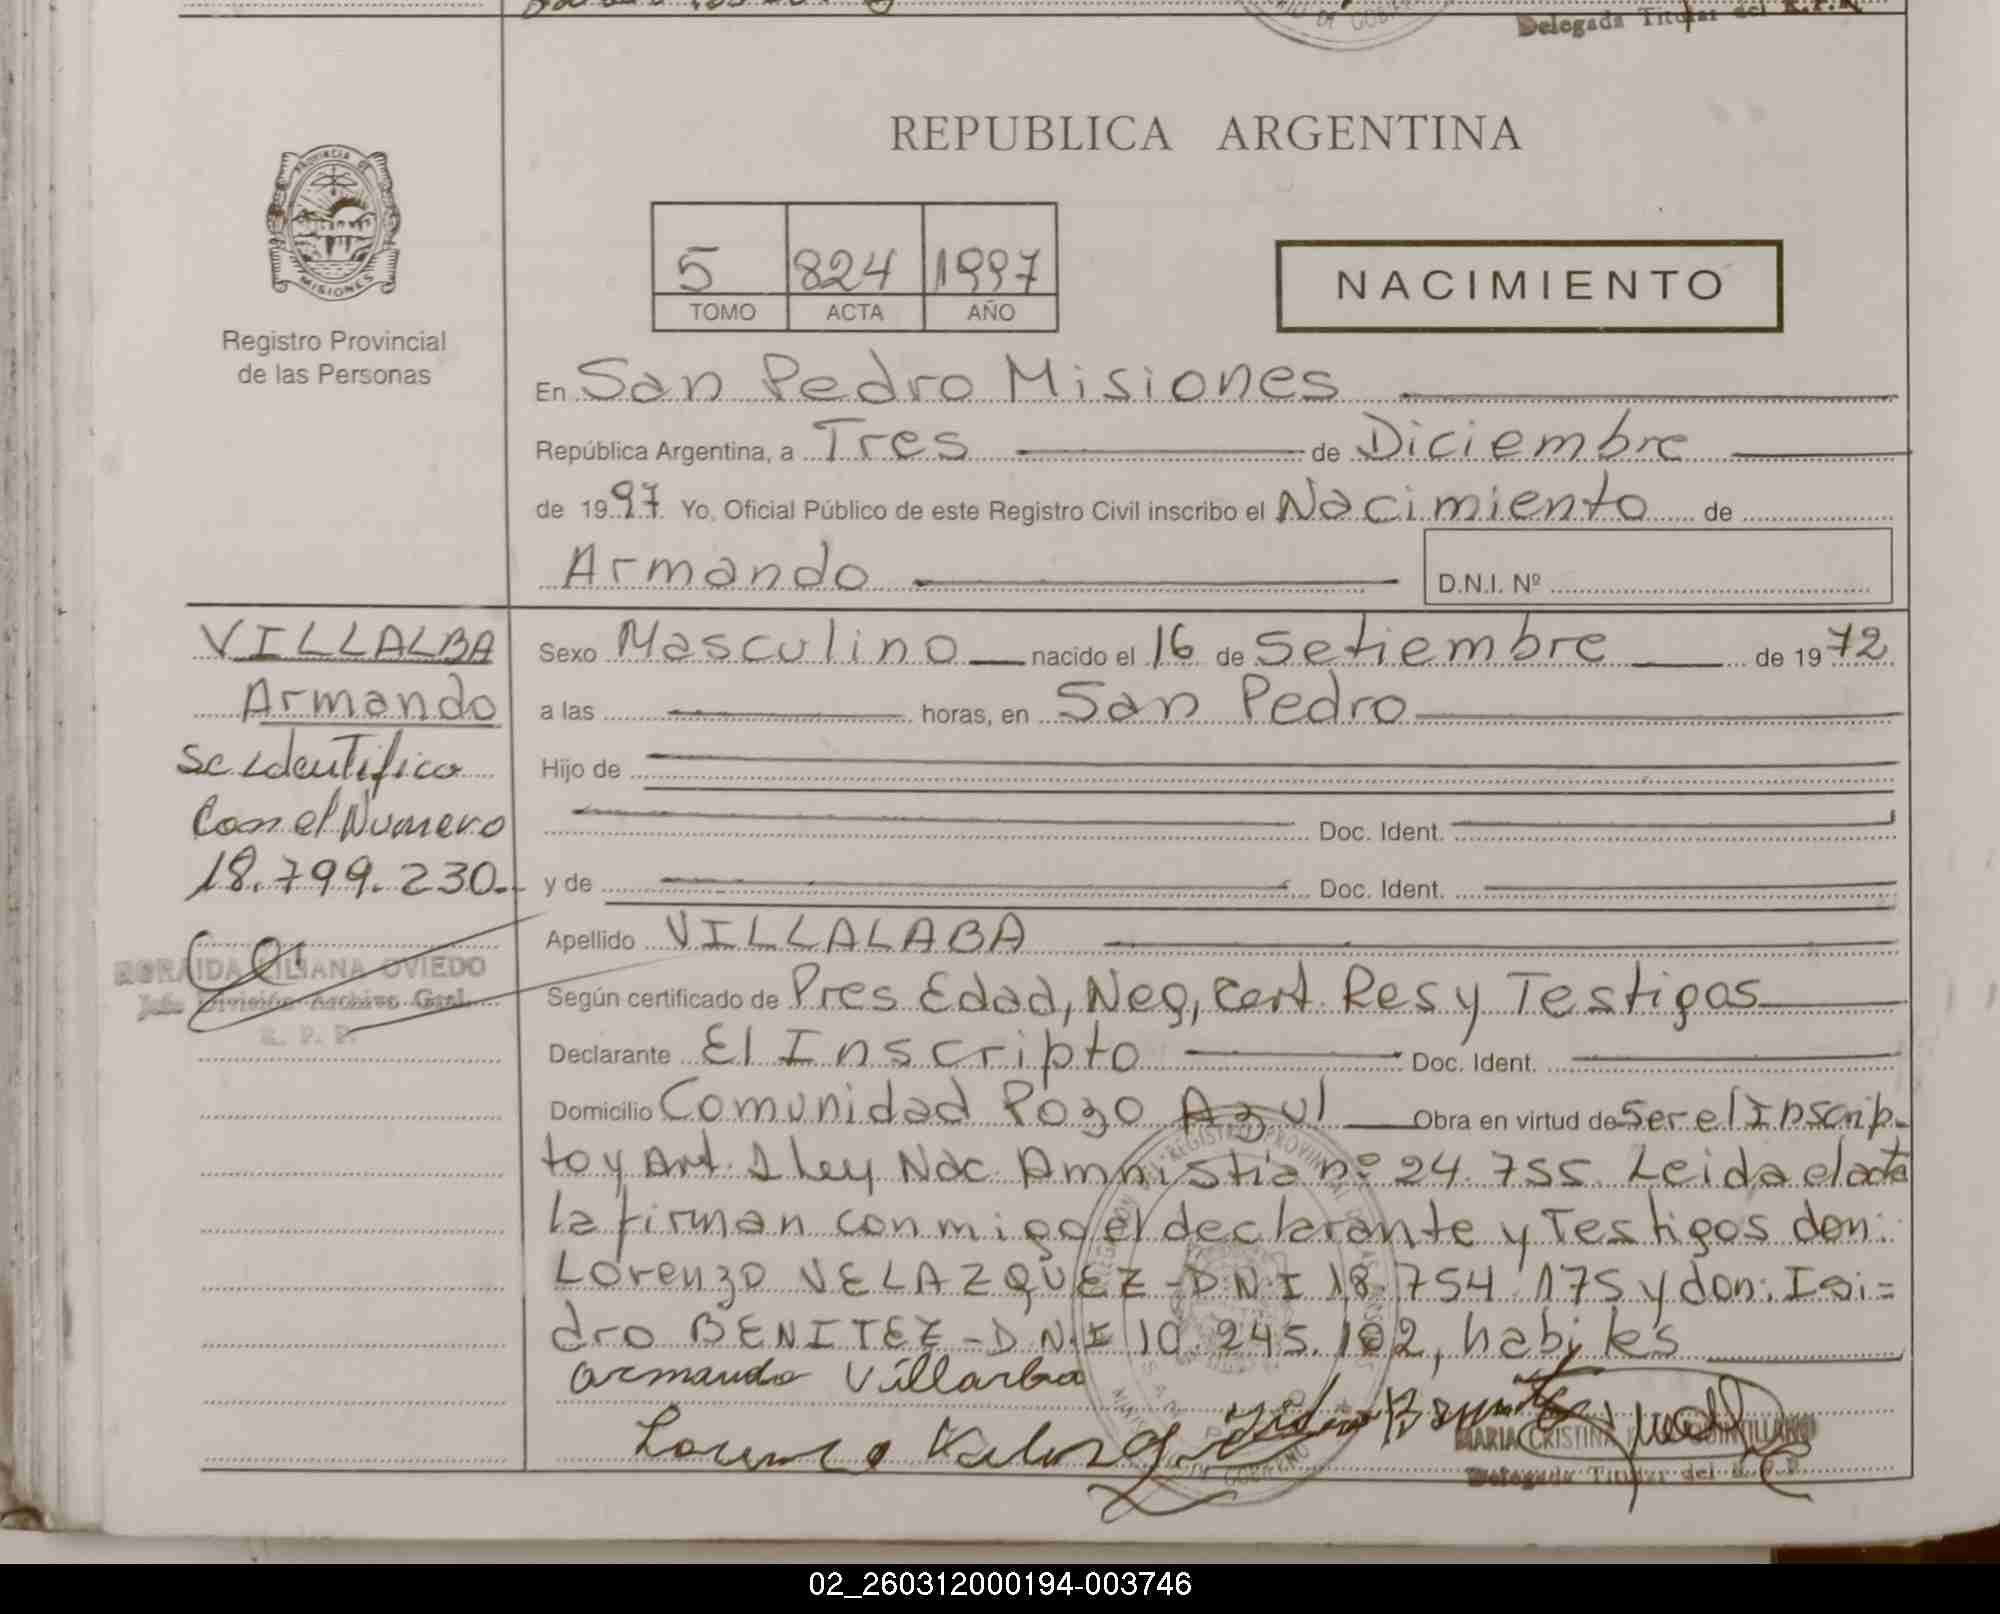 Delegada Titular del R.P.P.
REPUBLICA ARGENTINA
PROVINCIA DE
MISIONES
Registro Provincial
de las Personas
5 824 1997
TOMO ACTA AÑO
NACIMIENTO
En San Pedro Misiones
República Argentina, a Tres de Diciembre
de 1997. Yo, Oficial Público de este Registro Civil inscribo el Nacimiento de
Armando D.N.I. Nº
VILLALBA
Armando
se identifico
Con el Numero
18.799.230.-
ZORAIDA LILIANA OVIEDO
Jefe División Archivo Gral.
R. P. P.
Sexo Masculino nacido el 16 de Setiembre de 1972
a las horas, en San Pedro
Hijo de
Doc. Ident.
y de Doc. Ident.
Apellido VILLALABA
Según certificado de Pres Edad, Neg, Cert. Res y Testigos
Declarante El Inscripto Doc. Ident.
Domicilio Comunidad Pozo Azul Obra en virtud de Ser el Inscrip-
to y Art. 1 ley Nac Amnistia nº 24.755. Leida el acta
la firman conmigo el declarante y Testigos don:
Lorenzo VELAZQUEZ - D.N.I 18.754.175 y don: Isi=
dro BENITEZ - D.N.I 10.245.102, habiles
armando Villarba
MARIA CRISTINA QUINTILLANO
Delegada Titular del R.P.P.
02_260312000194-003746